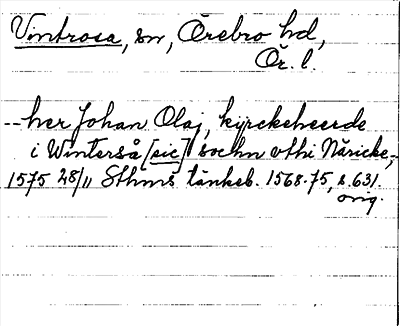 Vintrosa, sn, Örebro hd,
Ör. l.
-- her Johan Olaj, kyrckeheerde
i Winterså [sic] sochn vthi Näricke,-
1575 28/11 Sthms tänkeb. 1568-75, s. 631.
orig.